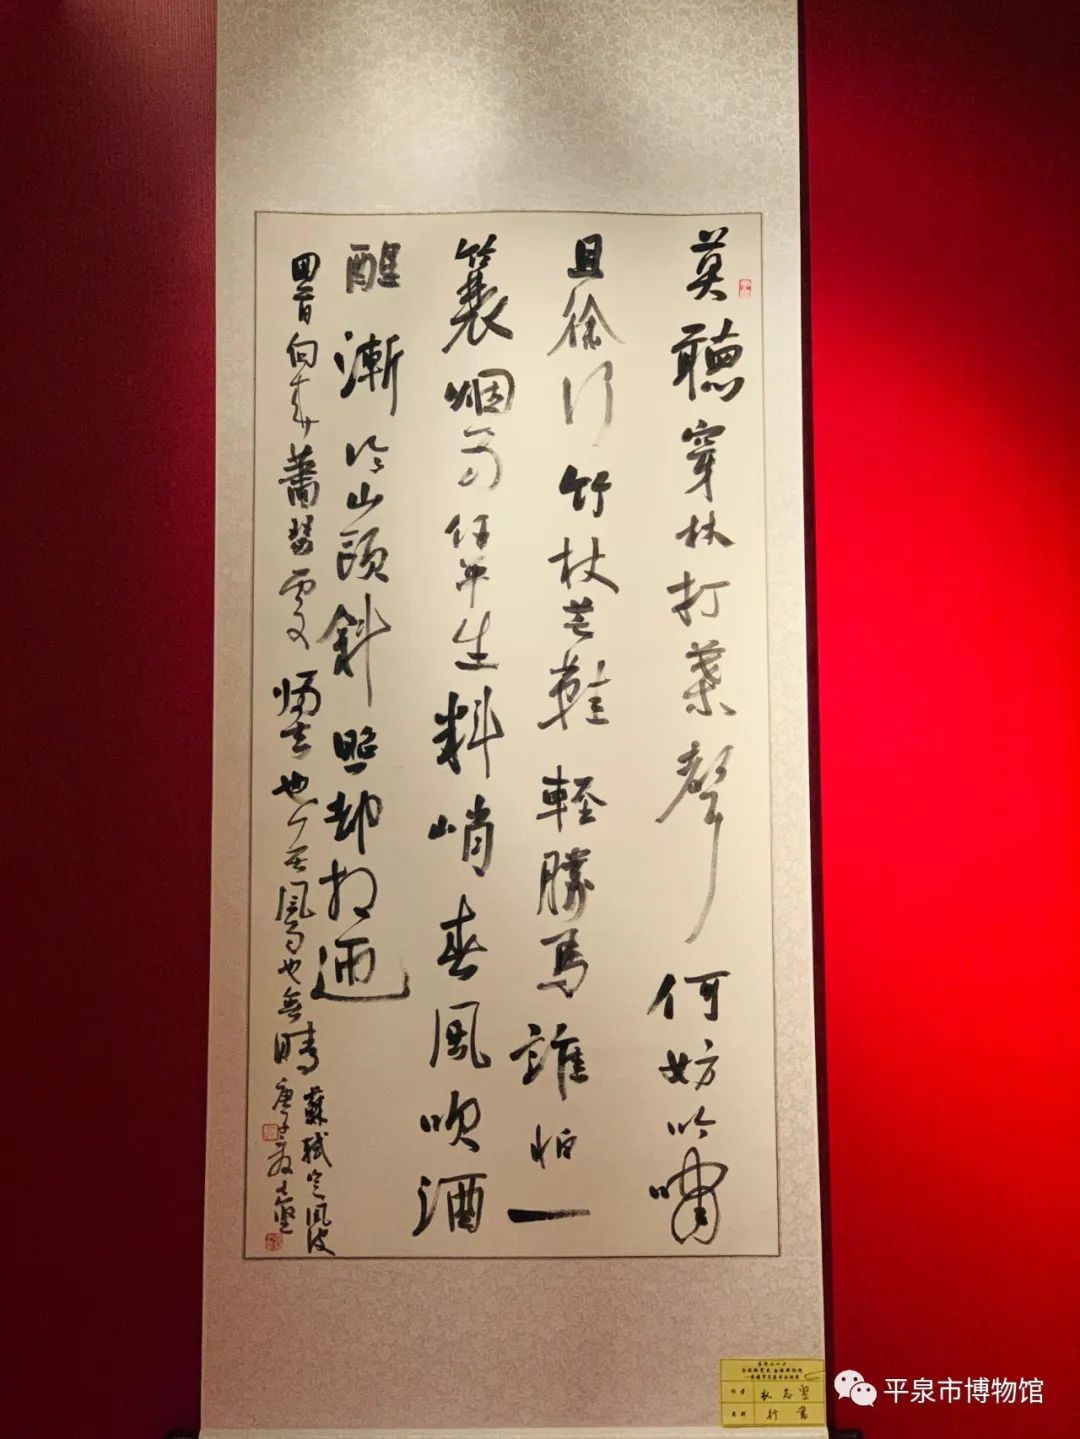 莫聽穿林打葉聲何妨吟嘯
且徐行竹杖芒鞋輕勝馬誰怕一
簑烟雨任平生料峭春風吹酒
醒漸冷山頭斜照却相迎
回首向来蕭瑟處歸去也无風雨也無晴
蘇軾定風波
庚子
作者 志堅
行書
平泉市博物馆